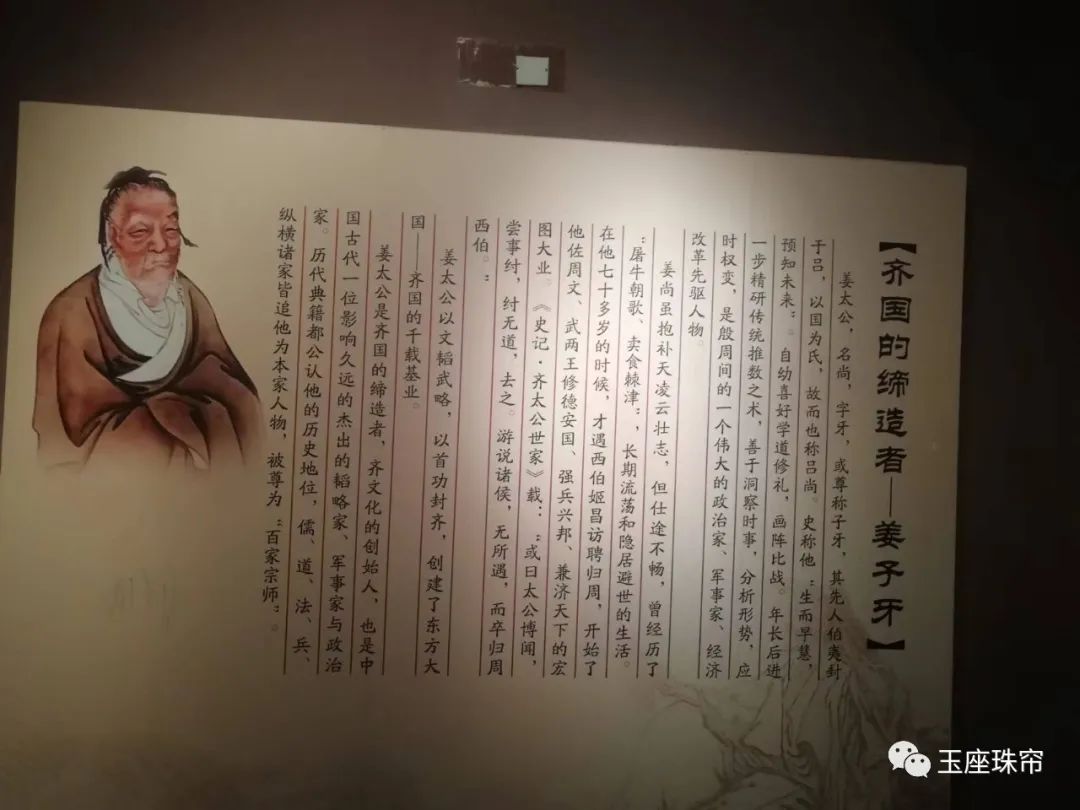 【齐国的缔造者——姜子牙】
姜太公，名尚，字牙，或尊称子牙，其先人伯夷封
于吕，以国为氏，故而也称吕尚。史称他“生而早慧，
预知未来”。自幼喜好学道修礼，画阵比战。年长后进
一步精研传统推数之术，善于洞察时事，分析形势，应
时权变，是殷周间的一个伟大的政治家、军事家、经济
改革先驱人物。
姜尚虽抱补天凌云壮志，但仕途不畅，曾经历了
“屠牛朝歌、卖食棘津”，长期流荡和隐居避世的生活。
在他七十多岁的时候，才遇西伯姬昌访聘归周，开始了
他佐周文、武两王修德安国、强兵兴邦、兼济天下的宏
图大业。《史记·齐太公世家》载：“或曰太公博闻，
尝事纣，纣无道，去之。游说诸侯，无所遇，而卒归周
西伯。”
姜太公以文韬武略，以首功封齐，创建了东方大
国——齐国的千载基业。
姜太公是齐国的缔造者，齐文化的创始人，也是中
国古代一位影响久远的杰出的韬略家、军事家与政治
家。历代典籍都公认他的历史地位，儒、道、法、兵、
纵横诸家皆追他为本家人物，被尊为“百家宗师”。
玉座珠帘